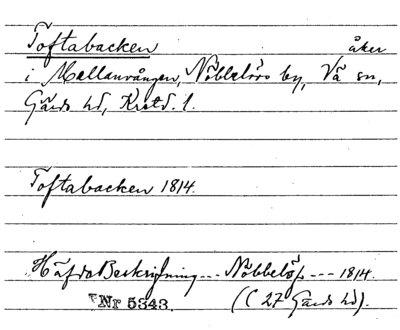 Toftabacken åker
i Mellanvången, Nöbbelövs by, Vä sn,
Gärds hd, Kristd. l.
Toftabacken 1814.
Häfda Beskrifning --- Nöbbelöf --- 1814.
Nr 5343. (C 27 Gärds hd).